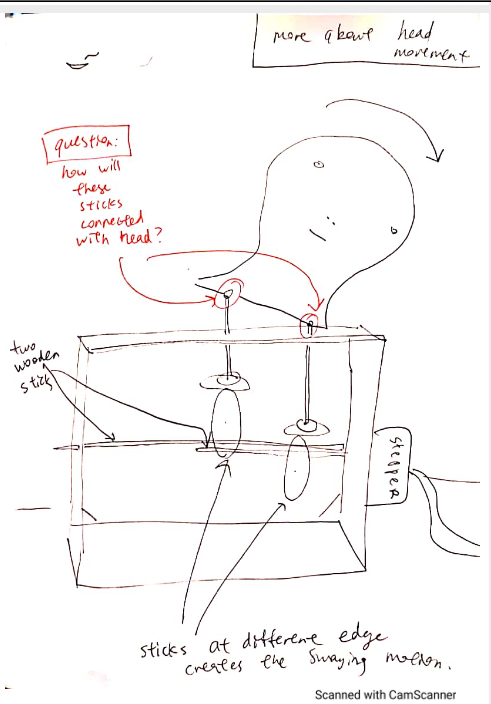 more about head
movement
question:
how will
these
sticks
connected
with head?
two
wooden
stick
stepper
sticks at different edge
creates the swaying motion.
Scanned with CamScanner